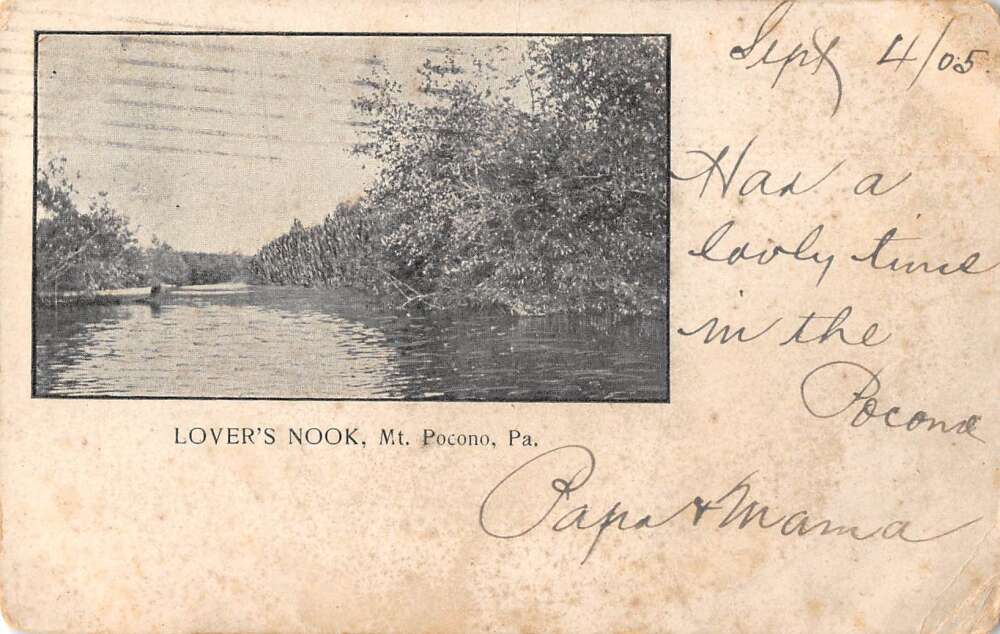 Sept 4/05
Had a
lovly time
in the
Pocono
LOVER'S NOOK, Mt. Pocono, Pa.
Papa + Mama